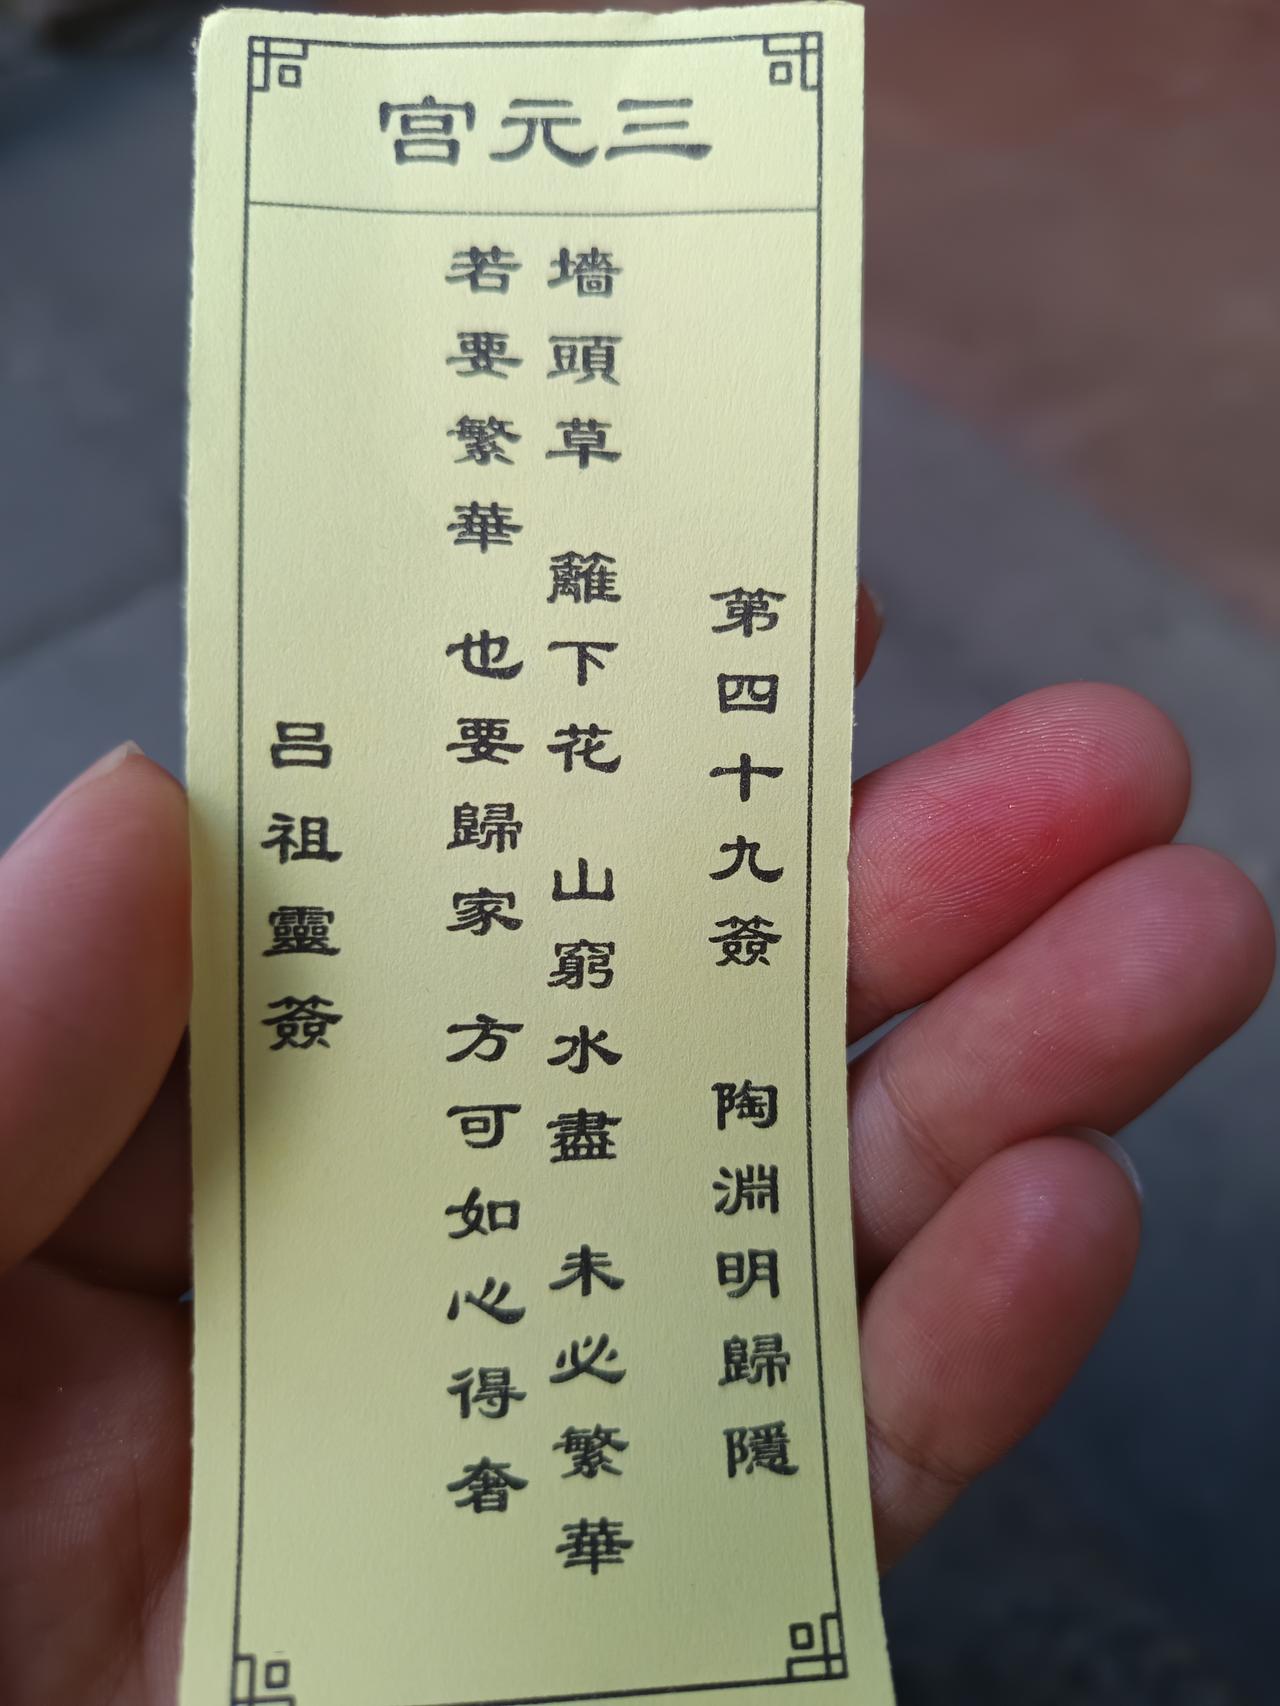 三元宮
第四十九簽 陶淵明歸隱
墻頭草 籬下花 山窮水盡 未必繁華
若要繁華 也要歸家 方可如心得奢
呂祖靈簽